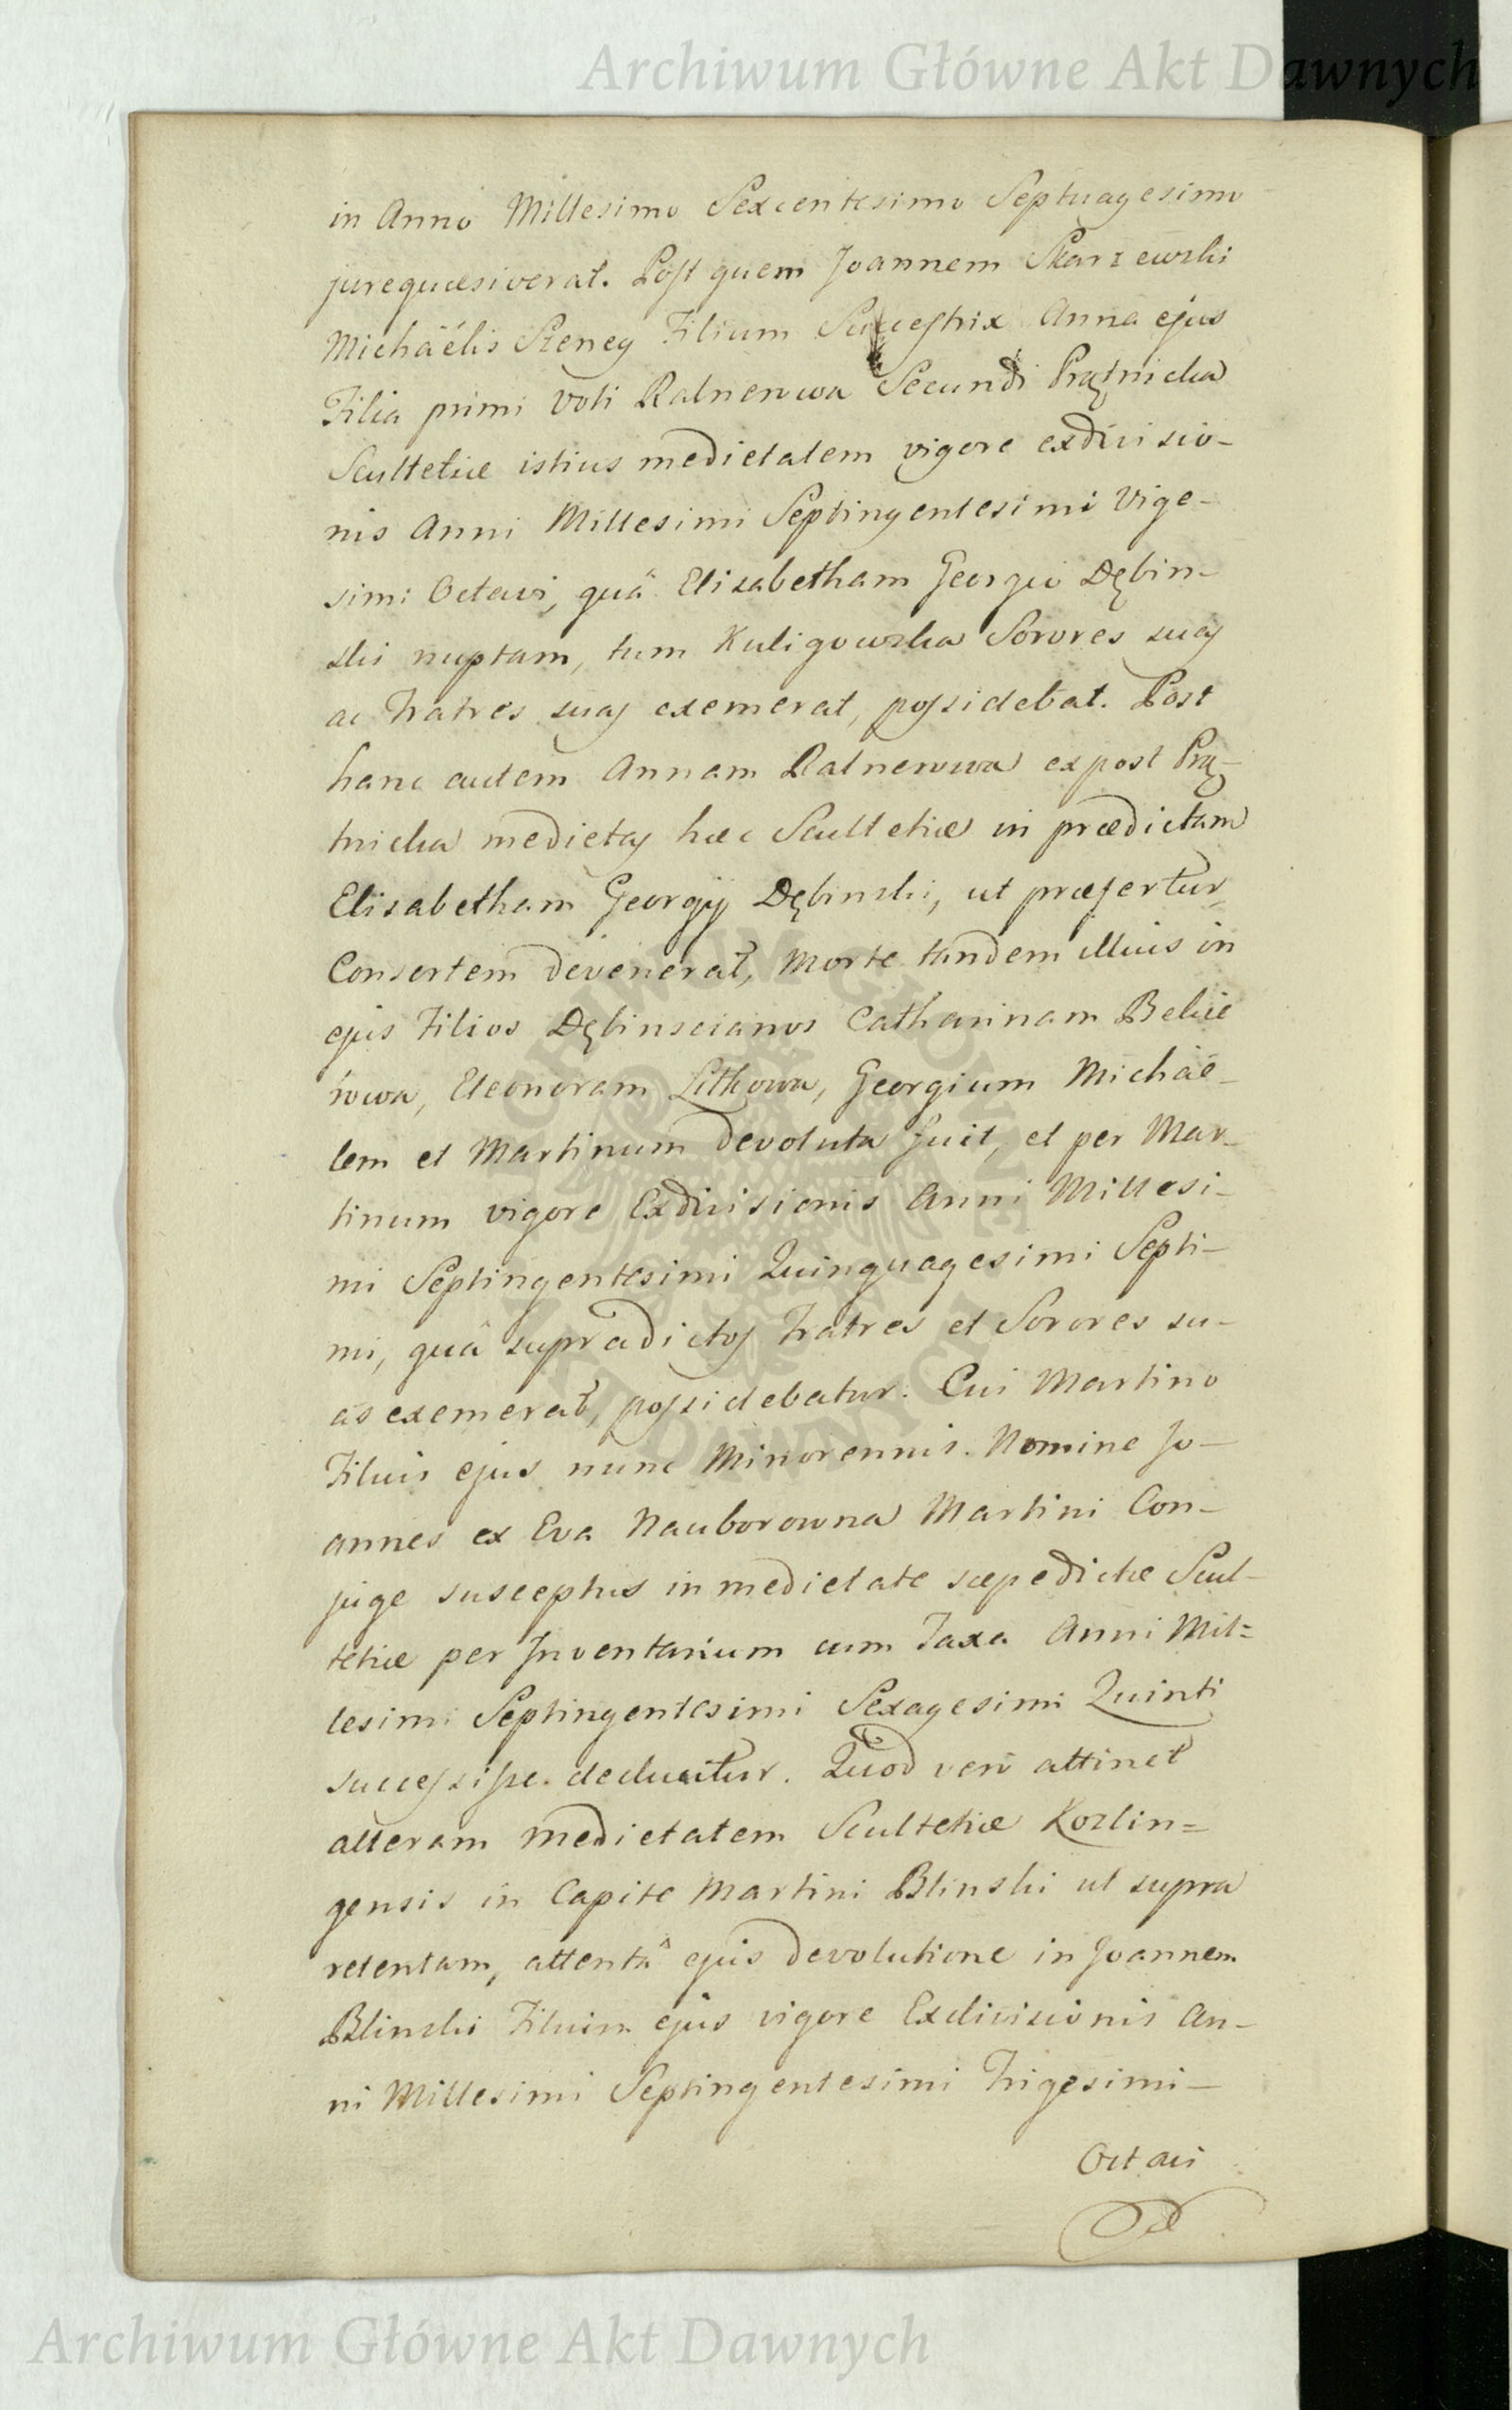 Archiwum Główne Akt Dawnych
in Anno Millesimo Sexcentesimo Septuagesimo
jurequæsiverat. Post quem Joannem Skarzewski
Michäélis Szeney Filium Succestrix Anna ejus
Filia primi voti Ratnerowa Secundi Prątnicka
Scultetiæ istius medietatem vigore exdivisio-
nis Anni Millesimi Septingentesimi Vige-
simi Octavi, quâ Elisabetham Georgii Dębin-
ski nuptam, tum Kuligowska Sorores suas
ac Fratres suas exemerat, possidebat. Post
hanc autem Annam Ratnerowa expost Prą-
tnicka medietas hæc Scultetiæ in prædictam
Elisabetham Georgij Dębinski, ut præfertur
Consortem devenerat, Morte tandem illius in
ejus Filios Dębinscianos Catharinam Belie
rowa, Eleonoram Litkowa, Georgium Michäe-
lem et Martinum devoluta fuit, et per Mar-
tinum vigore Exdivisionis Anni Millesi-
mi Septingentesimi Quinquagesimi Septi-
mi, quâ supradictos Fratres et Sorores su-
as exemerat, possidebatur. Cui Martino
Filius ejus nunc Minorennis Nomine Jo-
annes ex Eva Nauborowna Martini Con-
juge susceptus in medietate sæpedictæ Scul-
tetiæ per Inventarium cum Taxa Anni Mil=
lesimi Septingentesimi Sexagesimi Quinti
successisse deducitur. Quod vero attinet
alteram medietatem Scultetiæ Kozlin=
gensis in Capite Martini Blinski ut supra
retentam, attentâ ejus devolutione in Joannem
Blinski Filium ejus vigore Exdivisionis An-
ni Millesimi Septingentesimi Trigesimi-
Octavi
Archiwum Główne Akt Dawnych